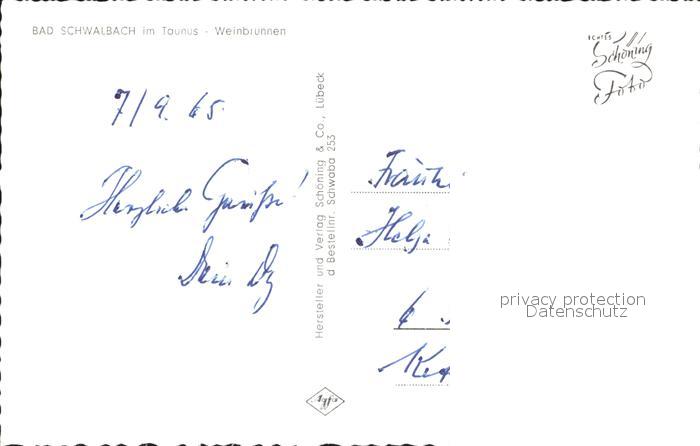 BAD SCHWALBACH im Taunus - Weinbrunnen
ECHTES
Schöning
Foto
7/9. 65.
Herzliche Grüße!
Dein
Hersteller und Verlag Schöning & Co., Lübeck
d Bestellnr. Schwaba 253
Fräulei
Helga
6
privacy protection
Datenschutz
Agfa